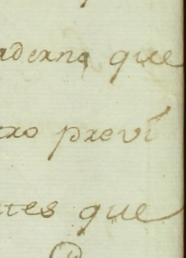 aderna que
xo previ
tes que